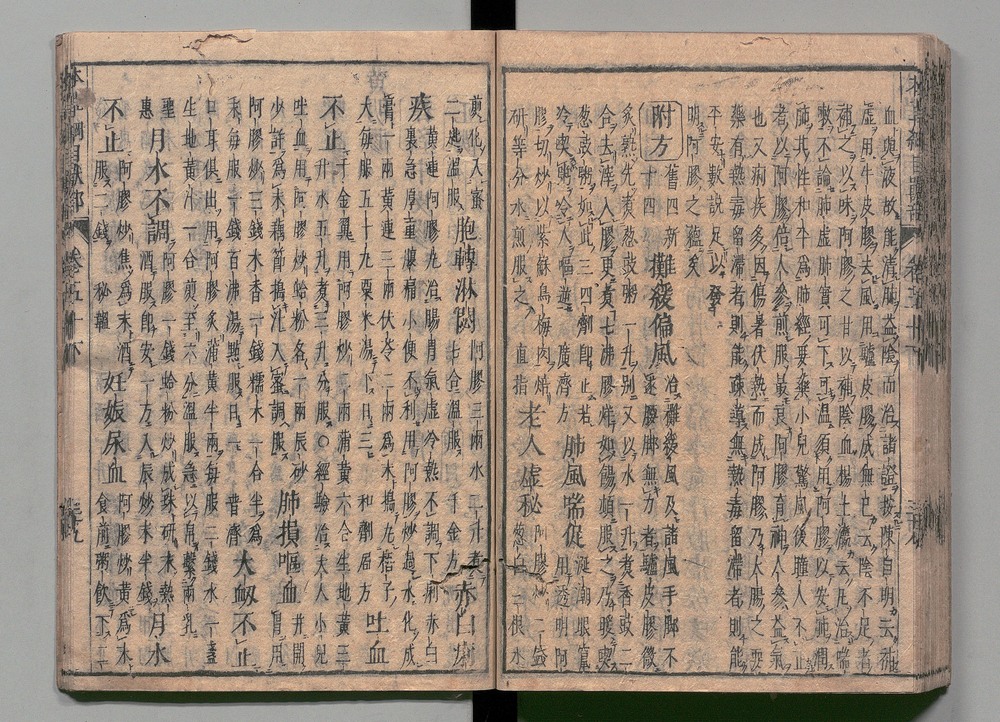 血與液故能清肺益陰而治諸證按陳自明云補
虛用牛皮膠去風用驢皮膠成無己云陰不足者
補之以味阿膠之甘以補陰血楊士瀛云凡治喘
嗽不論肺虛肺實可下可溫須用阿膠以安肺潤
肺其性和平爲肺經要藥小兒驚風後瞳人不正
者以阿膠倍人參煎服最良阿膠育神人參益氣
也又痢疾多因傷暑伏熱而成阿膠乃大腸之要
藥有熱毒留滯者則能疏導無熱毒留滯者則能
平安數說足以發
明阿膠之蘊矣
附方 舊四新十四 攤緩偏風 治攤緩風及諸風手脚不遂腰脚無力者驢皮膠微
炙熟先煮葱豉粥一升別又以水一升煮香豉二
合去滓入膠更煮七沸膠烊如餳頓服之乃暖喫
葱豉粥如此三四劑即止若
冷喫粥令人嘔逆廣濟方 肺風喘促 涎潮眼竄用透明阿
膠切炒以紫蘇烏梅肉焙
研等分水煎服之直指 老人虛秘 阿膠炒二錢葱白三根水
煎化入蜜
二匙溫服 胞轉淋閟 阿膠三兩水二升煮七合溫服千金方 赤白痢
疾 黃連阿膠丸治腸胃氣虛冷熱不調下痢赤白
裏急厚重腹痛小便不利用阿膠炒過水化成
膏一兩黃連三兩伏苓二兩爲末搗丸梧子
大每服五十丸粟米湯下日三 和劑局方 吐血
不止 千金翼用阿膠炒二兩蒲黃六合生地黃三
升水五升煮三升分服○經驗治大人小兒
吐血用阿膠炒蛤粉各一兩辰砂
少許爲末藕節搗汁入蜜調服 肺損嘔血 并開胃用
阿膠炒三錢木香一錢糯米一合半爲
末每服一錢百沸湯點服日一 普濟 大衂不止
口耳俱出用阿膠炙蒲黃半兩每服二錢水一盞
生地黃汁一合煎至六分溫服急以帛繫兩乳
聖惠 月水不調 阿膠一錢蛤粉炒成珠研末熱
酒服即安一方入辰砂末半錢 月水
不止 阿膠炒焦爲末酒
服二錢 秘韞 妊娠尿血 阿膠炒黃爲末
食前粥飲下二